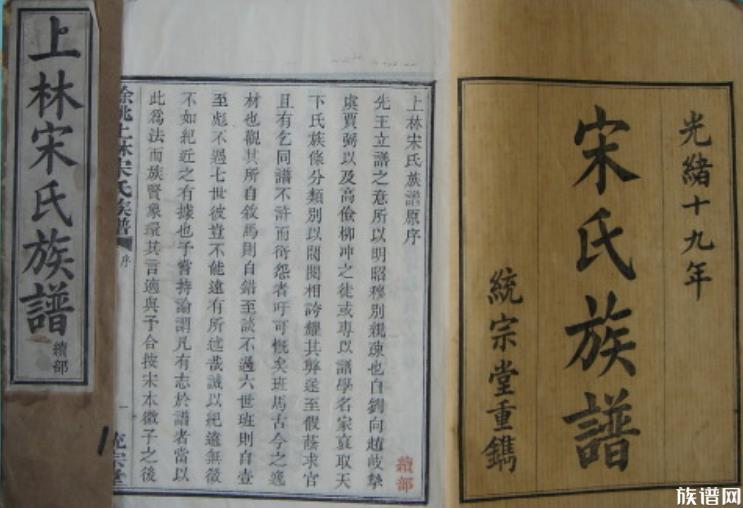 光緒十九年
宋氏族譜
統宗堂重鐫
上林宋氏族譜原序
先王立譜之意所以明昭穆別親疎也自劉向趙岐摯
虞賈弼以及高儉柳冲之徒或專以譜學名家裒取天
下氏族條分類別以閥閱相誇耀其弊遂至假蔭求官
且有乞同譜不許而銜怨者吁可慨矣班馬古今之逸
材也觀其所自敘馬則自錯至談不過六世班則自壹
至彪不過七世彼豈不能遠有所述哉誠以紀遠無徵
不如紀近之有據也予嘗持論謂凡有志於譜者當以
此為法而族賢象環其言適與予合按宋本微子之後
續部
餘姚上林宋氏族譜
序
一
統宗堂
上林宋氏族譜
續部
族谱网